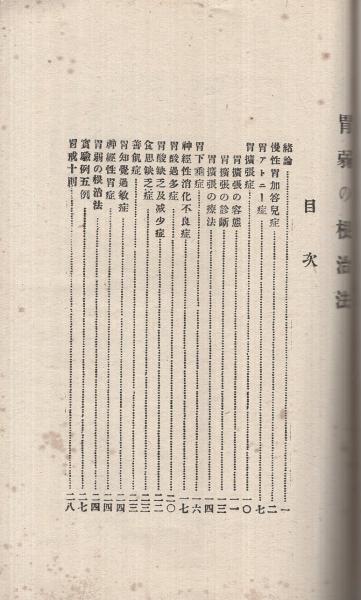 胃弱の根治法
目次
緒論……一
慢性胃加答兒症……二
胃アトニー症……七
胃擴張症……一〇
胃擴張の容態……一一
胃擴張の診斷……一三
胃擴張の療法……一四
胃下垂症……一六
神經性消化不良症……一七
胃酸過多症……二〇
胃酸缺乏及減少症……二二
食思缺乏症……二三
善飢症……二三
胃知覺過敏症……二四
神經性胃症……二四
胃弱の根治法……二四
實驗例五例……二七
胃戒十則……二八